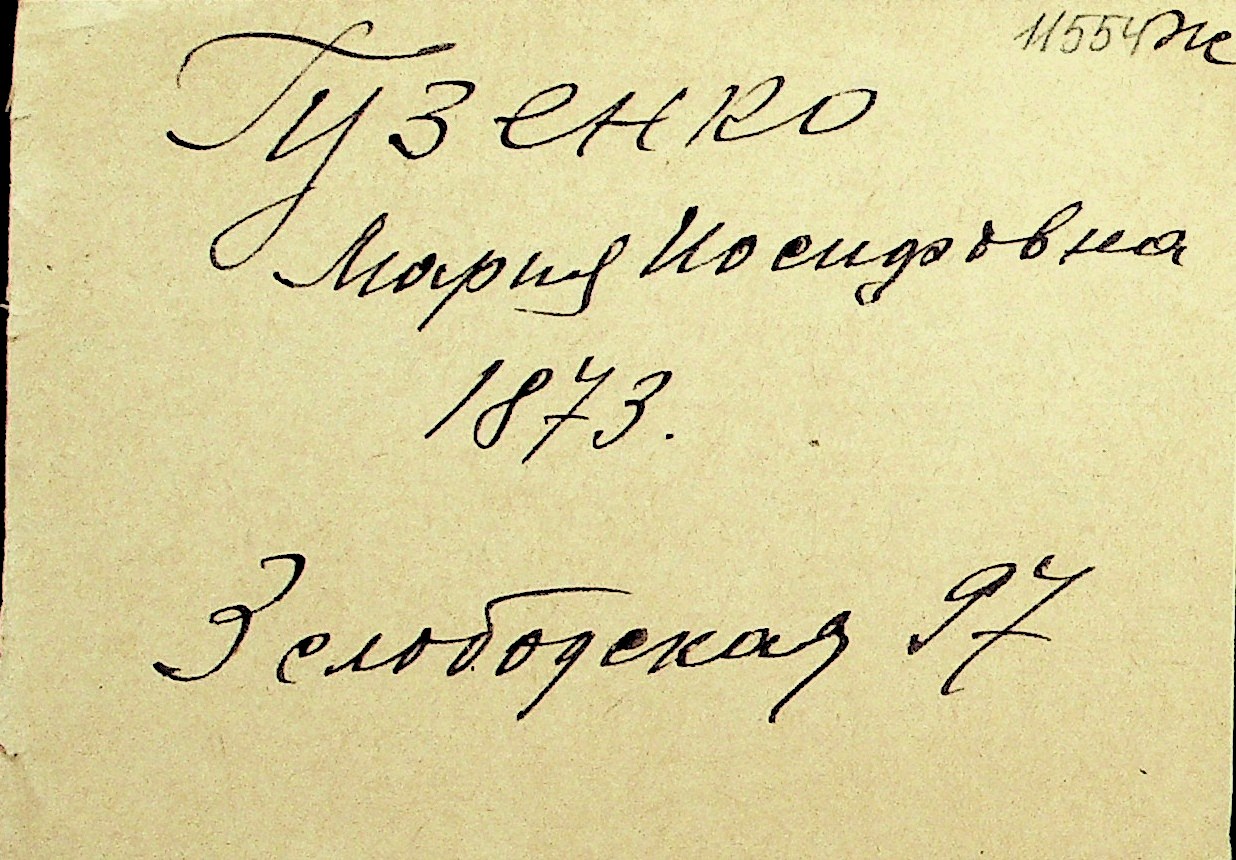 11554 Ж
Гузенко
Мария Иосифовна
1873.
3 слободская 97